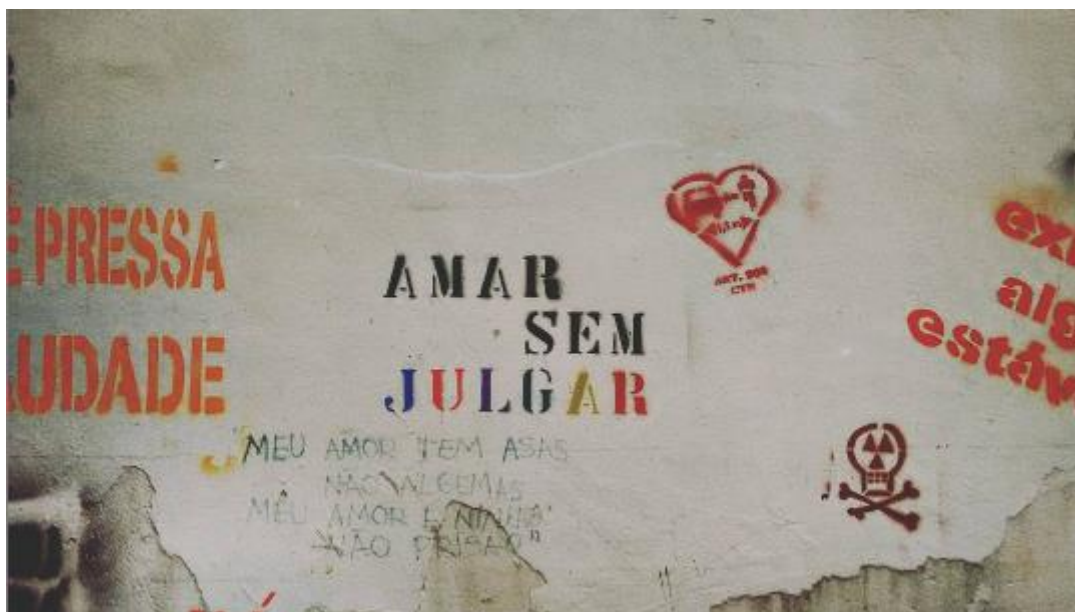 PRESSA
UDADE
AMAR
SEM
JULGAR
"MEU AMOR TEM ASAS
NÃO ALGEMAS
MEU AMOR É NINHO
NÃO PRISÃO"
1,5 m
ART. 201
CTB
ex
alg
estáv